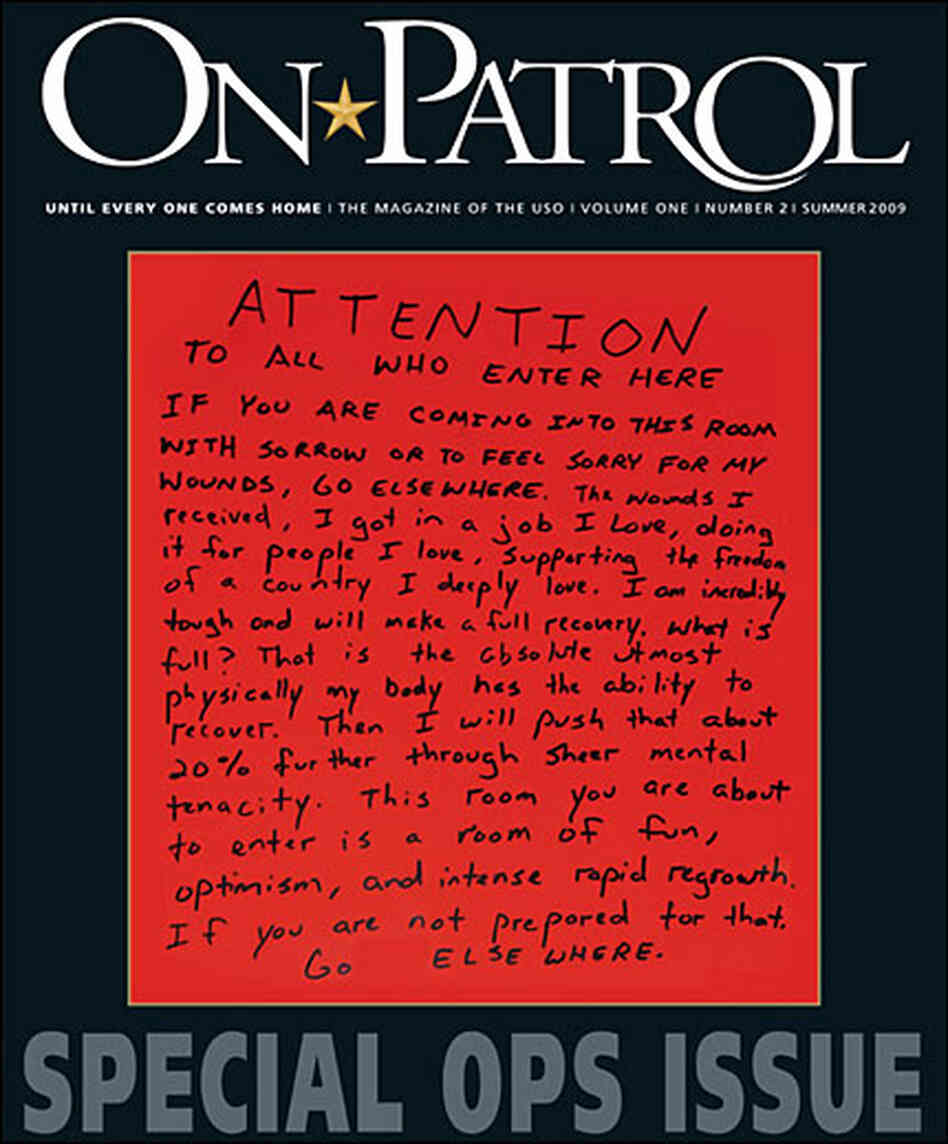 ON★PATROL
UNTIL EVERY ONE COMES HOME | THE MAGAZINE OF THE USO | VOLUME ONE | NUMBER 2 | SUMMER 2009
ATTENTION
TO ALL WHO ENTER HERE
IF YOU ARE COMING INTO THIS ROOM
WITH SORROW OR TO FEEL SORRY FOR MY
WOUNDS, GO ELSEWHERE. The wounds I
received, I got in a job I Love, doing
it for people I love, supporting the freedom
of a country I deeply love. I am incredibly
tough and will make a full recovery. What is
full? That is the absolute utmost
physically my body has the ability to
recover. Then I will push that about
20% further through sheer mental
tenacity. This room you are about
to enter is a room of fun,
optimism, and intense rapid regrowth.
If you are not prepared for that.
Go ELSEWHERE.
SPECIAL OPS ISSUE